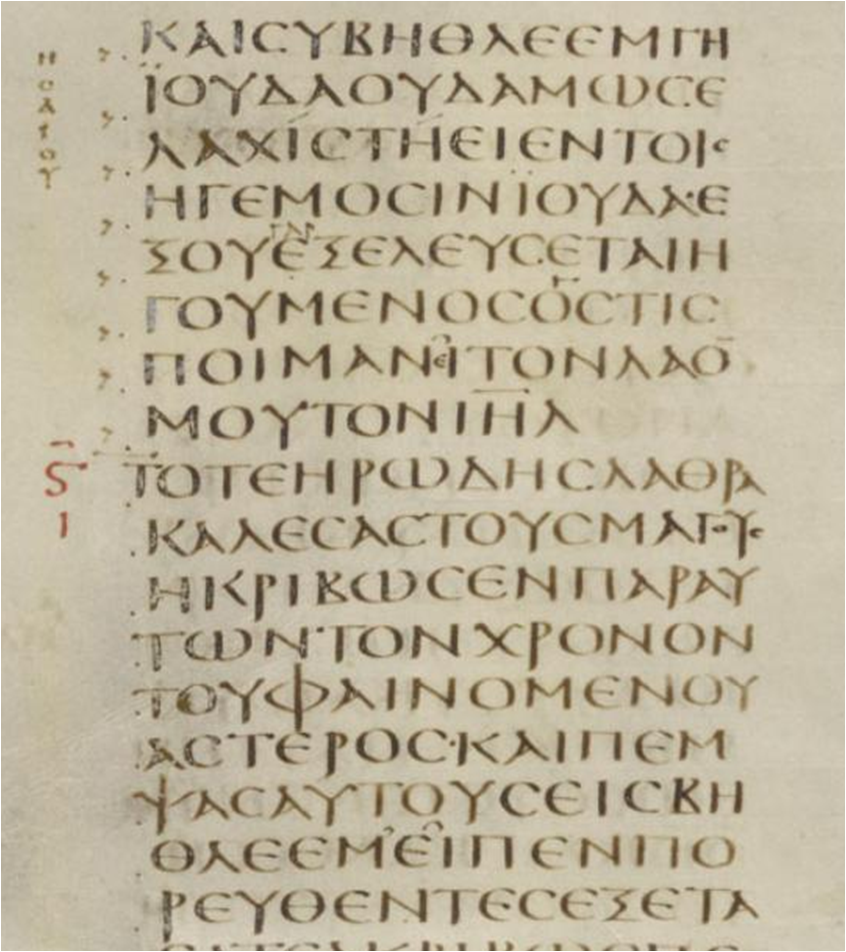 Η
C
Α
Ϊ
Ο
Υ
ΚΑΙCΥΒΗΘΛΕΕΜΓΗ
ΪΟΥΔΑΟΥΔΑΜΩCΕ
ΛΑΧΙCΤΗΕΙΕΝΤΟΙC
ΗΓΕΜΟCΙΝΪΟΥΔΑΕ
ΞΟΥΕΞΕΛΕΥCΕΤΑΙΗ
ΓΟΥΜΕΝΟCΟCΤΙC
ΠΟΙΜΑΝΕΙΤΟΝΛΑΟ̅
ΜΟΥΤΟΝΙΗ̅Λ
Ϛ̅
Ι
ΤΟΤΕΗΡΩΔΗCΛΑΘΡΑ
ΚΑΛΕCΑCΤΟΥCΜΑΓΟΥC
ΗΚΡΙΒΩCΕΝΠΑΡΑΥ
ΤΩΝ·ΤΟΝΧΡΟΝΟΝ
ΤΟΥΦΑΙΝΟΜΕΝΟΥ
ΑCΤΕΡΟC·ΚΑΙΠΕΜ
ΨΑCΑΥΤΟΥCΕΙCΒΗ
ΘΛΕΕΜΕΙΠΕΝΠΟ
ΡΕΥΘΕΝΤΕCΕΞΕΤΑ